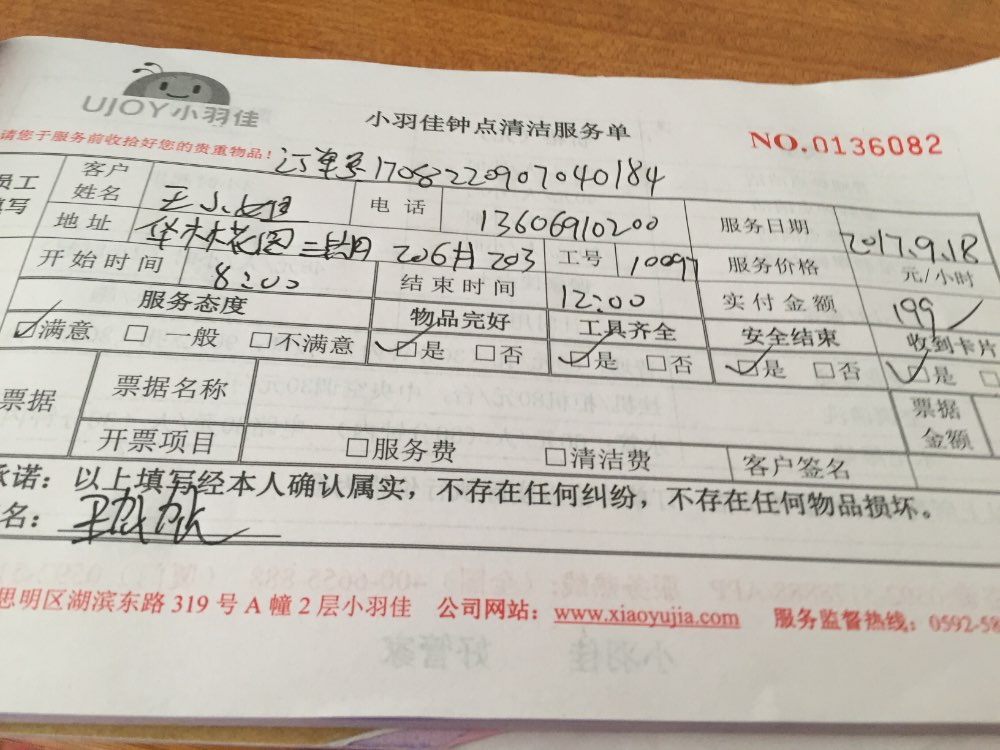 UJOY小羽佳
小羽佳钟点清洁服务单
NO.0136082
请您于服务前收拾好您的贵重物品！
订单号1708220907040184
员工
填写
客户
姓名
王小姐
电 话
13606910200
服务日期
2017.9.18
地 址
华林花园二期 206井 203
工号
10097
服务价格
元/小时
开始时间
8:00
结束时间
12:00
实付金额
199
服务态度
物品完好
工具齐全
安全结束
收到卡片
☑满意 □ 一般 □不满意
☑是 □否
☑是 □否
☑是 □否
☑是 □
票据
票据名称
票据
金额
开票项目
□服务费 □清洁费
客户签名
承诺：以上填写经本人确认属实，不存在任何纠纷，不存在任何物品损坏。
名：
思明区湖滨东路 319 号 A 幢 2 层小羽佳 公司网站：www.xiaoyujia.com 服务监督热线：0592-58